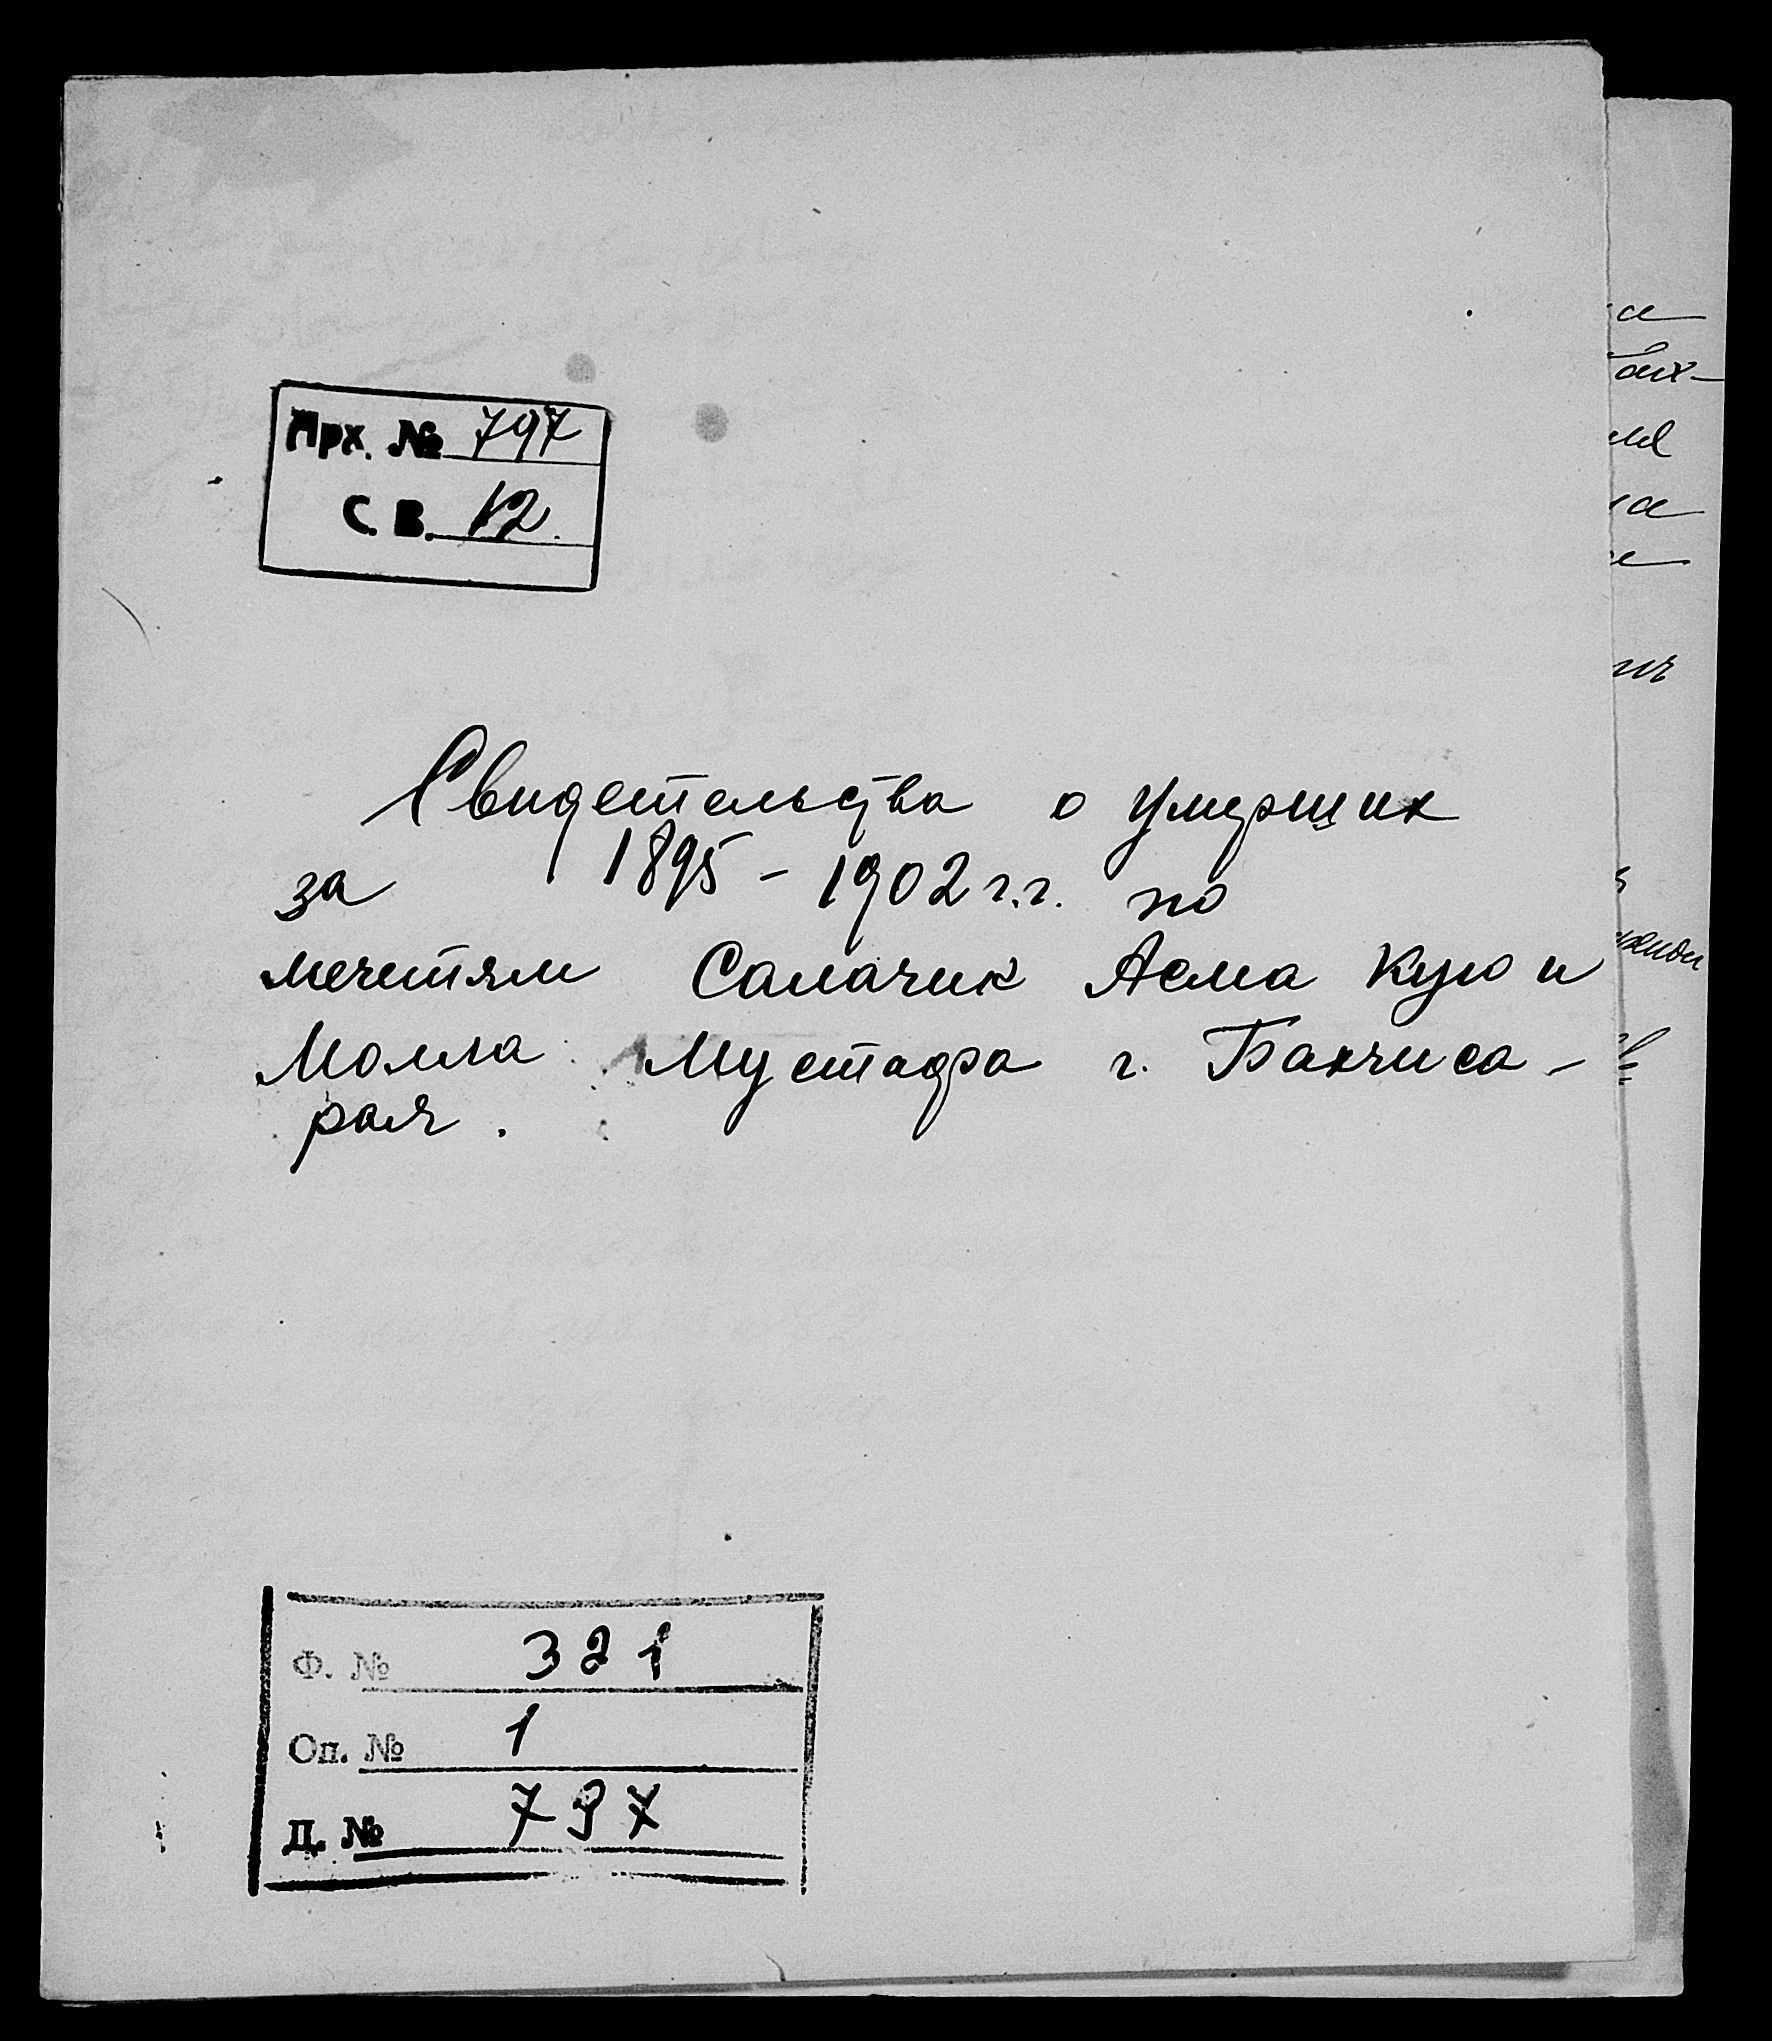 Арх. № 797
С. В. 12.
Свидетельства о умерщих
за 1895 - 1902 г.г. по
мечетям Салачик Асма Кую и
Молла Мустафа г. Бахчиса-
рая.
Ф. № 321
Оп. № 1
Д. № 797